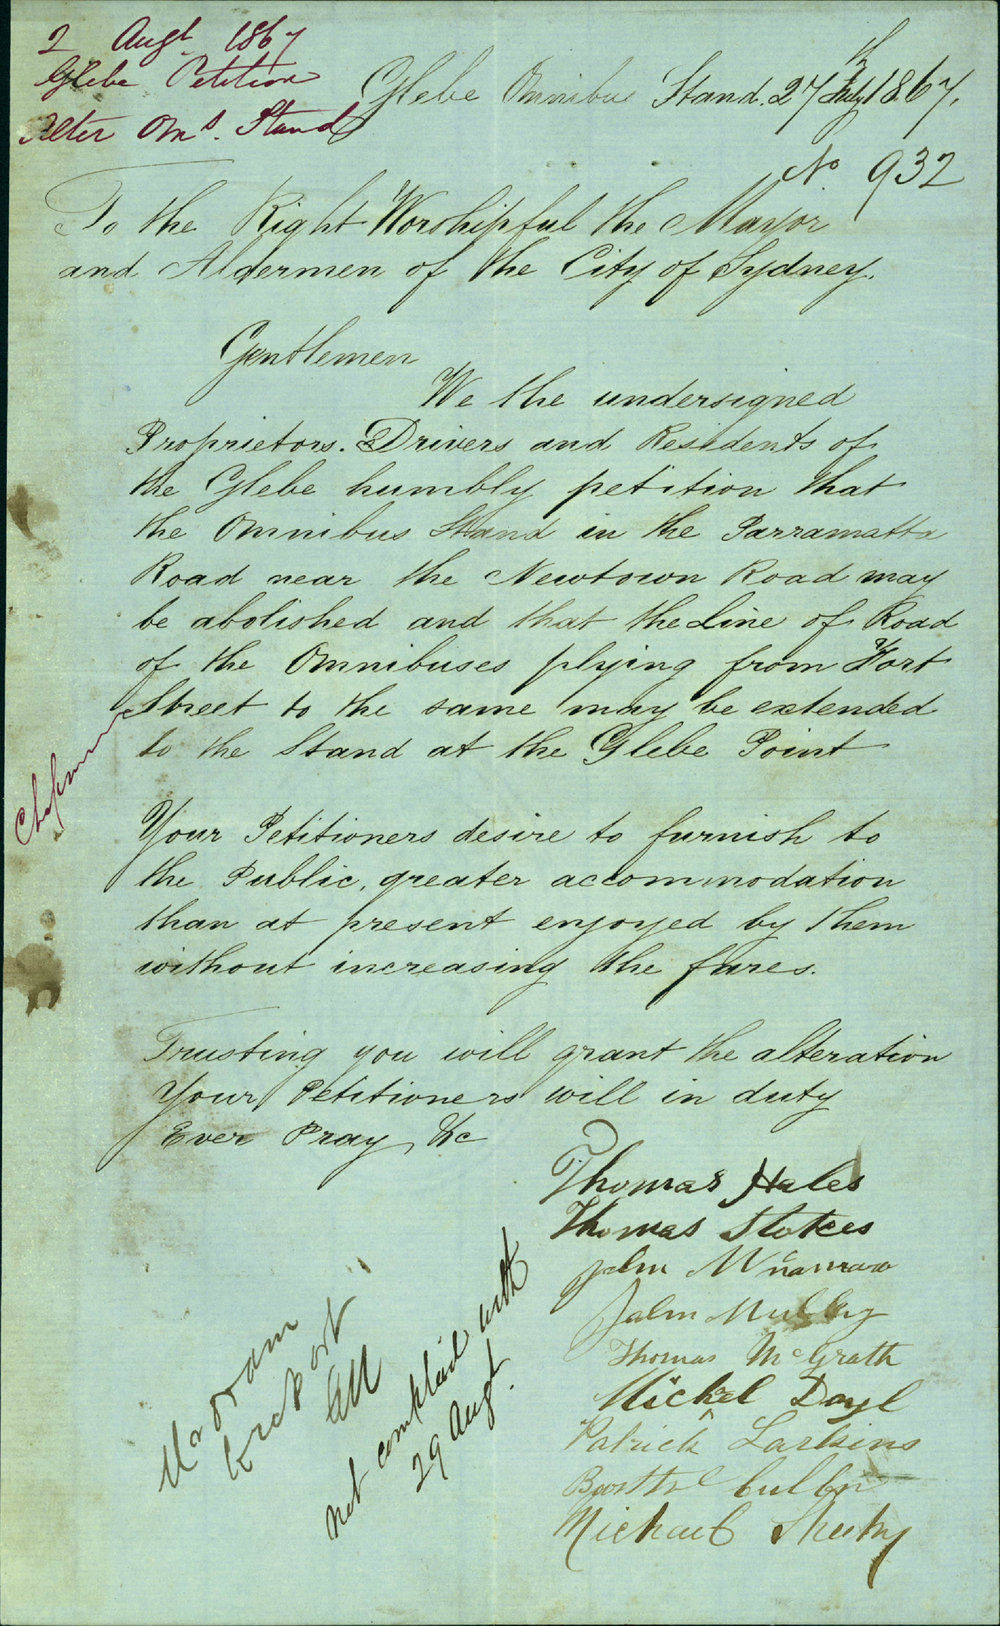 2 Augt 1867
Glebe Petition
Alter Oms. Stand
Glebe Omnibus Stand. 27th July 1867.
No 932
To the Right Worshipful the Mayor
and Aldermen of the City of Sydney.
Gentlemen
We the undersigned
Proprietors. Drivers and Residents of
the Glebe humbly petition that
the Omnibus Stand in the Parramatta
Road near the Newtown Road may
be abolished and that the Line of Road
of the Omnibuses plying from Fort
Street to the same may be extended
to the Stand at the Glebe Point
Your Petitioners desire to furnish to
the Public, greater accommodation
than at present enjoyed by them
without increasing the fares.
Trusting you will grant the alteration
Your Petitioners will in duty
Ever Pray, &c
Thomas Hales
Thomas Stokes
John
John
Thomas McGrath
Mickel Doyl
Patrick Larkins
Michael Sheehy
Mr Oram
report
All
not complied with
29 Augt.